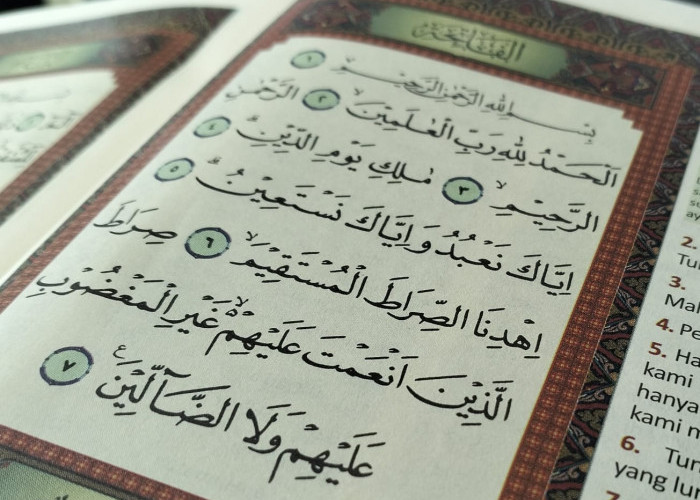 الفاتحة
بِسْمِ اللهِ الرَّحْمٰنِ الرَّحِيْمِ ١
اَلْحَمْدُ لِلّٰهِ رَبِّ الْعٰلَمِيْنَۙ ٢ الرَّحْمٰنِ
الرَّحِيْمِۙ ٣ مٰلِكِ يَوْمِ الدِّيْنِۗ ٤
اِيَّاكَ نَعْبُدُ وَاِيَّاكَ نَسْتَعِيْنُۗ ٥
اِهْدِنَا الصِّرَاطَ الْمُسْتَقِيْمَۙ ٦ صِرَاطَ
الَّذِيْنَ اَنْعَمْتَ عَلَيْهِمْ ەۙ غَيْرِ الْمَغْضُوْبِ
عَلَيْهِمْ وَلَا الضَّاۤلِّيْنَ ࣖ ٧
2.
3.
4.
5. Ha
kami
hanya
kami m
6. Tun
yang lu
7.